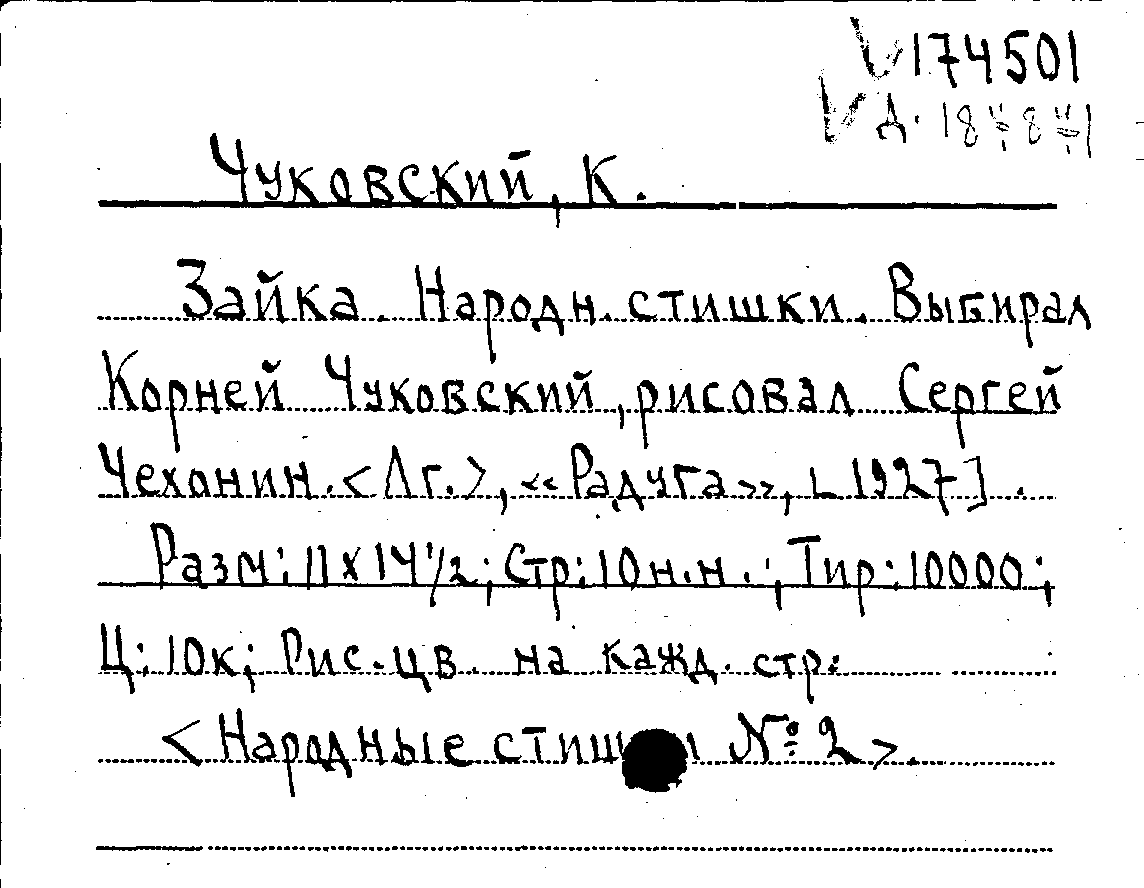 V 174501
V Д.
Чуковский, К.
Зайка. Народн. стишки. Выбирал
Корней Чуковский, рисовал Сергей
Чехонин. <Лг.>, «Радуга», [1927].
Разм: 11 x 14 1/2; Стр: 10 н.н.; Тир: 10000;
Ц: 10к; Рис. цв. на кажд. стр.
<Народные № 2>.